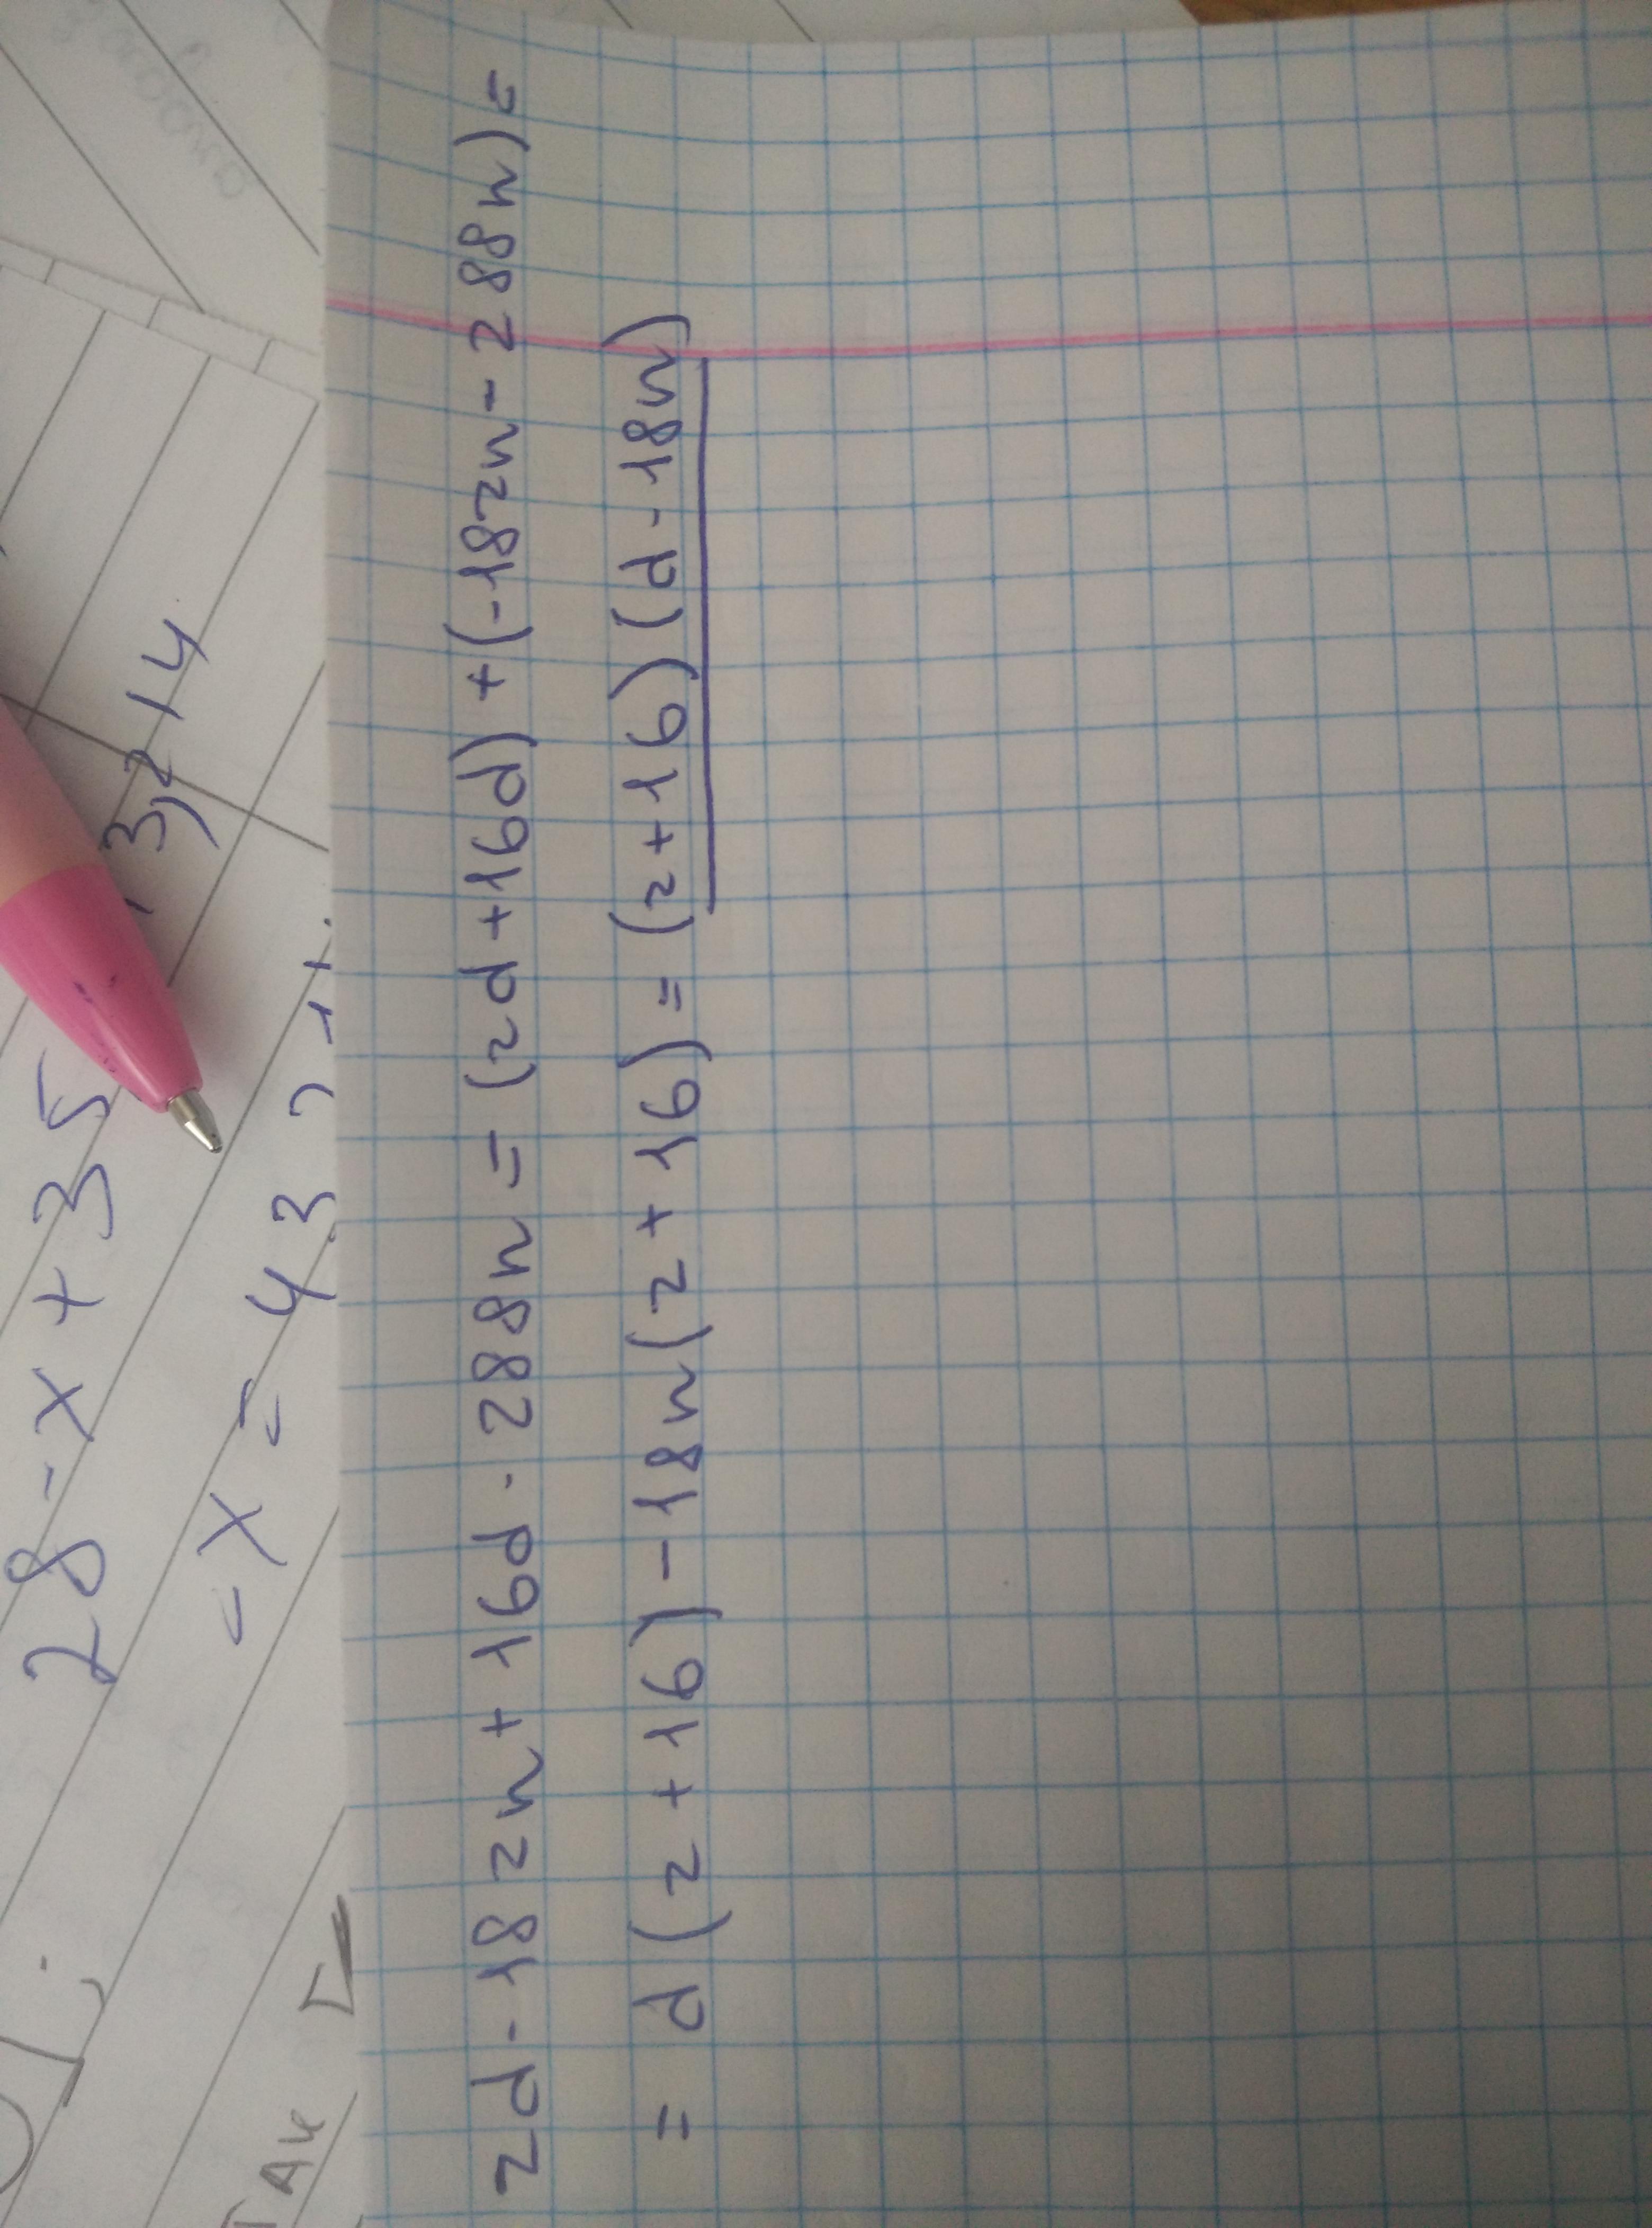 28 - x + 35
= x = 43
3,214
ТАК
zd - 18zn + 16d - 288n = (zd + 16d) + (-18zn - 288n) =
= d(z + 16) - 18n(z + 16) = (z + 16)(d - 18n)